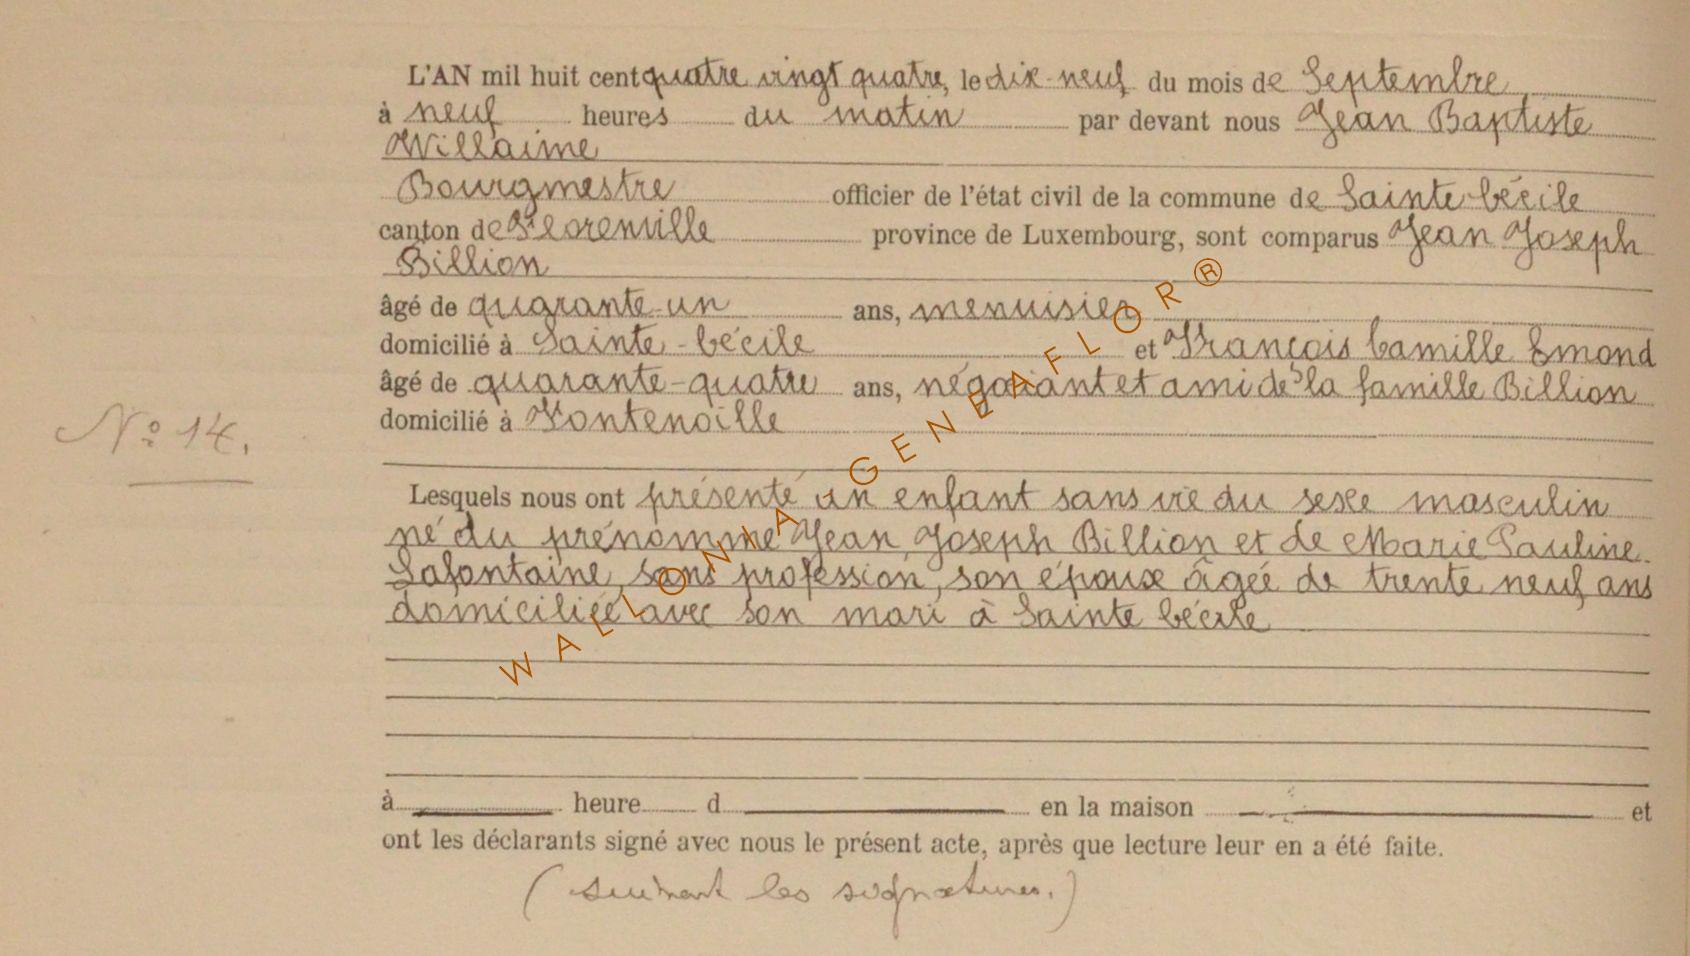 L'AN mil huit cent quatre vingt quatre, le dix-neuf du mois de Septembre
à neuf heures du matin par devant nous Jean Baptiste
Willaime
Bourgmestre officier de l'état civil de la commune de Sainte-Cécile
canton de Florenville province de Luxembourg, sont comparus Jean Joseph
Billion
âgé de quarante-un ans, menuisier
domicilié à Sainte-Cécile et François Camille Emond
âgé de quarante-quatre ans, négociant et ami de la famille Billion
N° 14. domicilié à Fontenoille
Lesquels nous ont présenté un enfant sans vie du sexe masculin
né du prénommé Jean Joseph Billion et de Marie Pauline
Lafontaine, sans profession, son épouse âgée de trente neuf ans
domiciliée avec son mari à Sainte Cécile
à heure d en la maison et
ont les déclarants signé avec nous le présent acte, après que lecture leur en a été faite.
(suivent les signatures.)
WALLONIA GENEAFLOR®